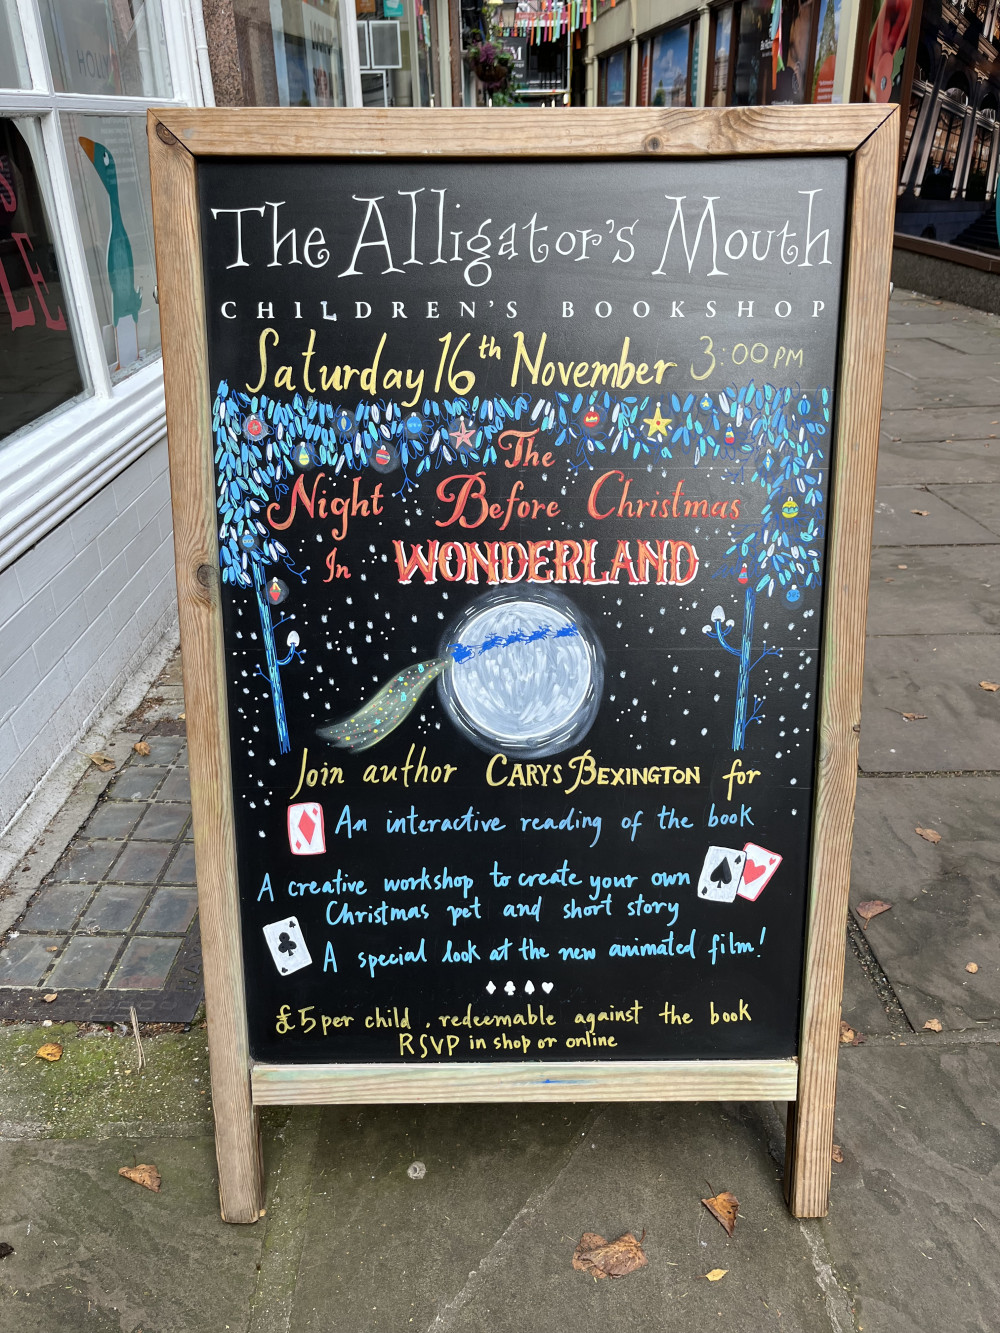 The Alligator's Mouth
CHILDREN'S BOOKSHOP
Saturday 16th November 3:00 PM
The
Night Before Christmas
In WONDERLAND
Join author CARYS BEXINGTON for
An interactive reading of the book
A creative workshop to create your own
Christmas pet and short story
A special look at the new animated film!
£5 per child, redeemable against the book
RSVP in shop or online